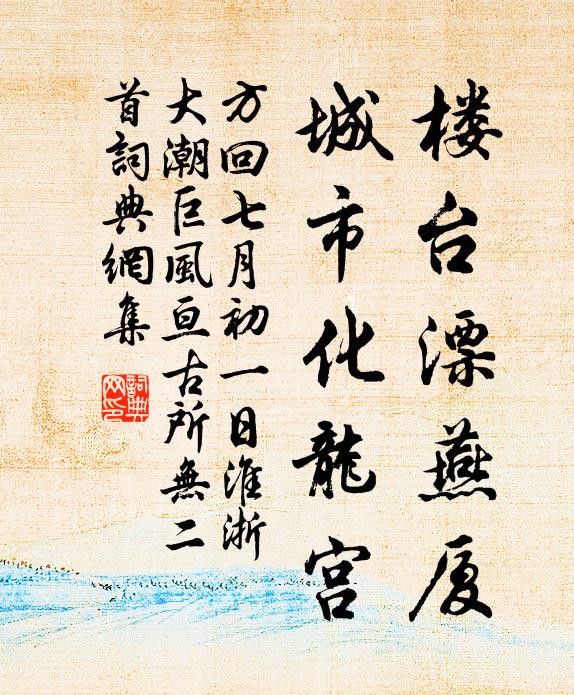 楼台漂燕厦
城市化龍宫
方回七月初一日淮浙
大潮巨風亘古所無二
首詞典網集
詞典
网印